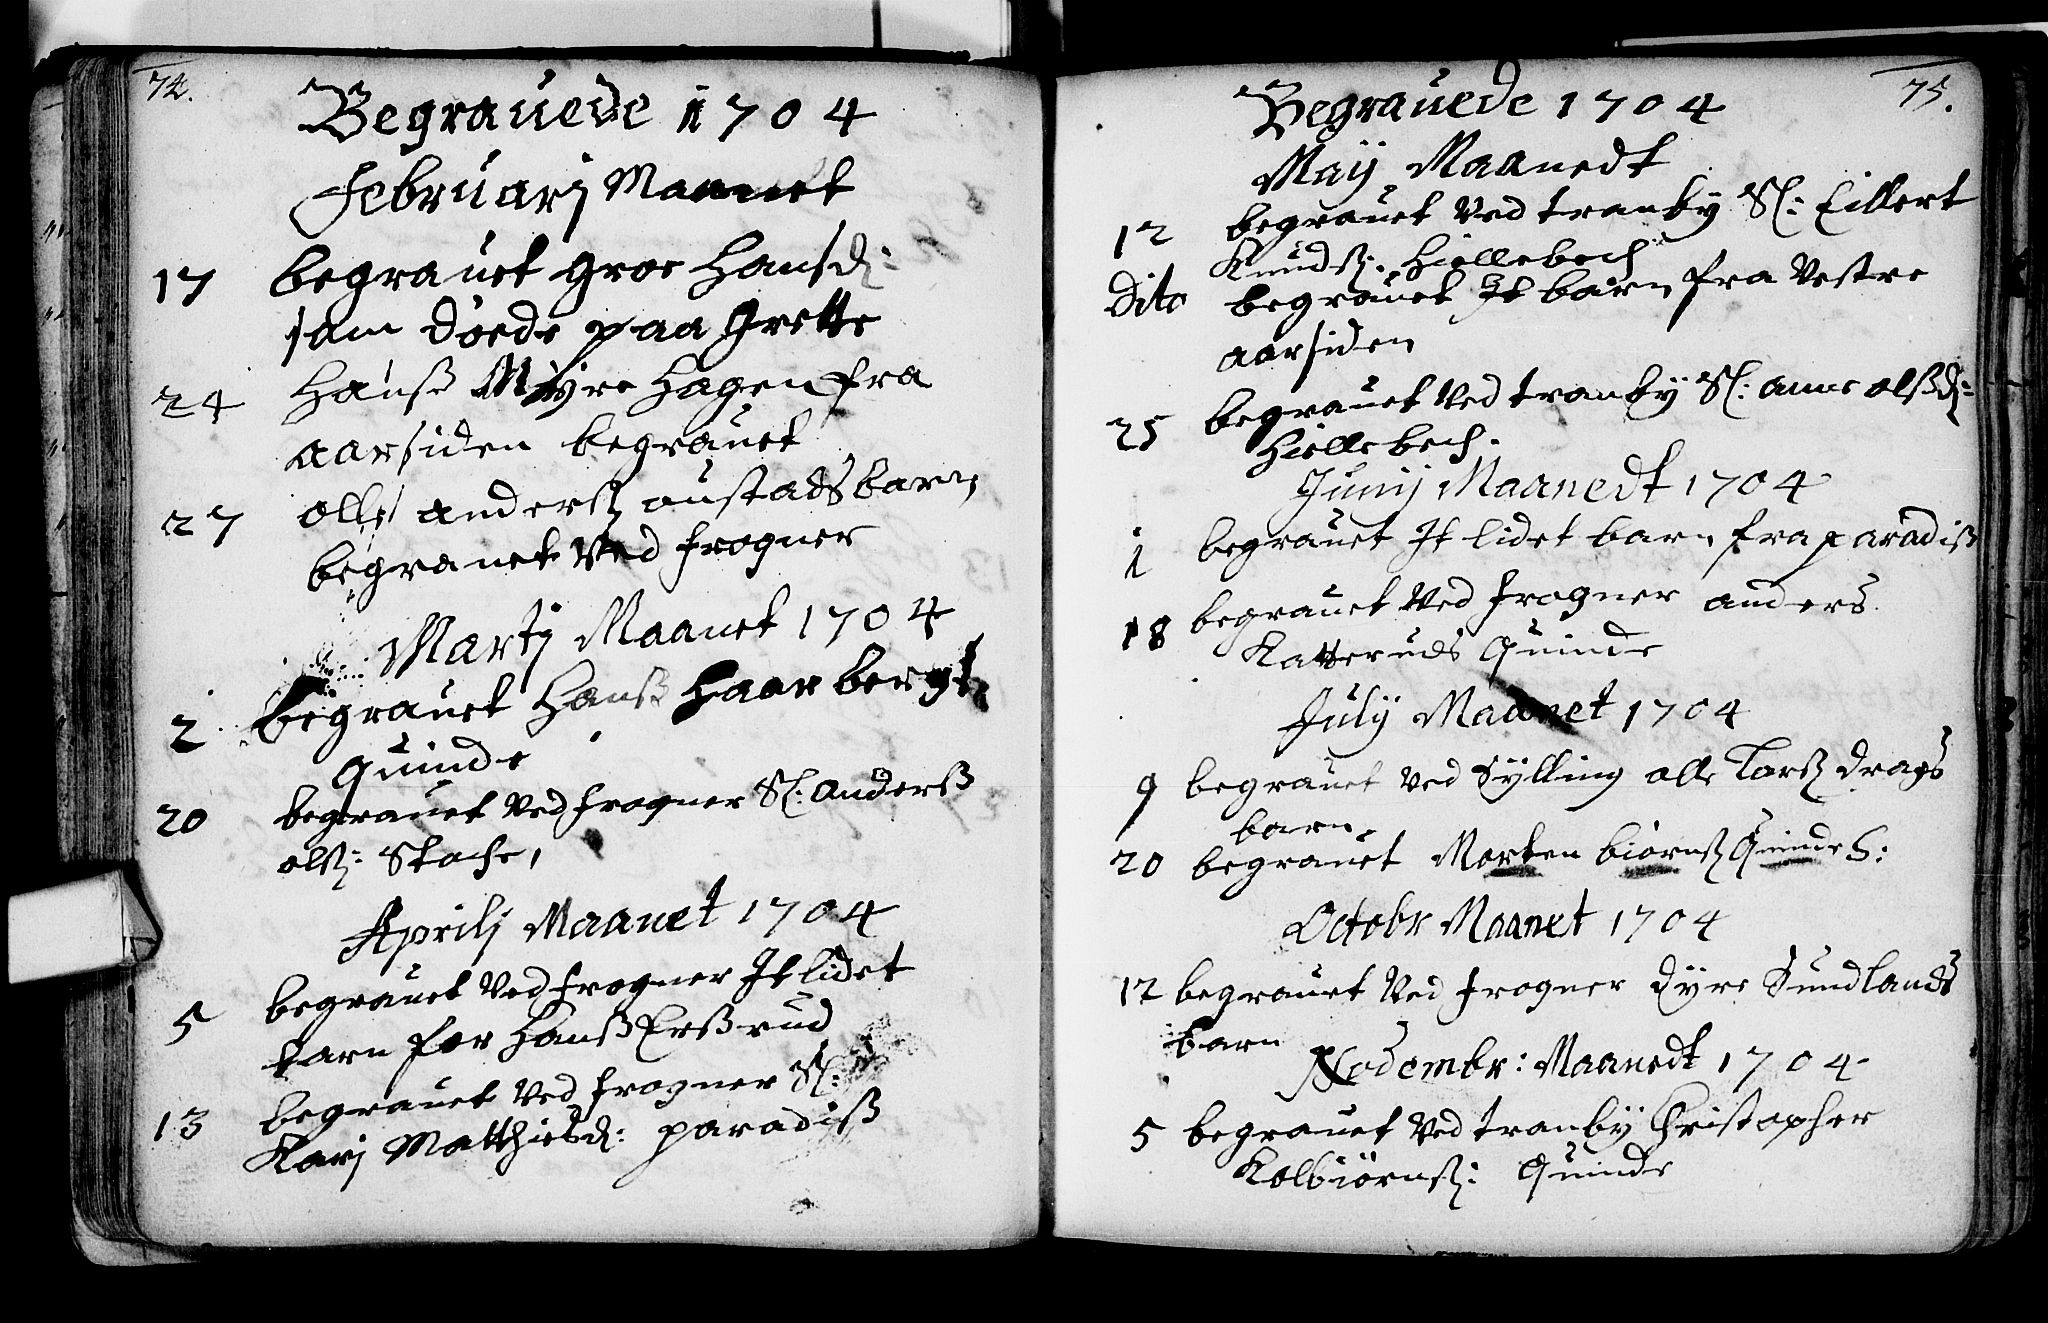 74.
Begrauede 1704
Februarj Maanet
17 begrauet groe Hansd:
som döede paa grette
24 Hanß Myre Hagen fra
aarsiden begrauet
27 olle anderß oustads barn
begrauet Ved frogner
Martj Maanet 1704
2 begrauet Hanß Haarbergs
Quinde
20 begrauet Ved frogner Sl: anderß
olß: Stache,
Aprilj Maanet 1704
5 begrauet Ved frogner It lidet
barn for Hanß Erßrud
13 begrauet Ved frogner Sl:
Karj Matthiesd: paradiß
75.
Begrauede 1704
Maij Maanedt
12 begrauet Ved tranby Sl: Eillert
Knudß: Hiellebech
Dito begrauet It barn fra Vestre
aarsiden
25 begrauet Ved tranby Sl: anne olßd:
Hiellebech.
Junij Maanedt 1704
1 begrauet It lidet barn fra paradiß
18 begrauet Ved frogner anders
Katteruds Quinde
Julij Maanet 1704
9 begrauet Ved Sylling olle Larß drags
barn.
20 begrauet Morten biörnß Quinde S:
Octobr Maanet 1704
12 begrauet Ved frogner dyre Sundlands
barn
Novembr: Maanedt 1704
5 begrauet Ved tranby Christopher
Kolbiörnß: Quinde